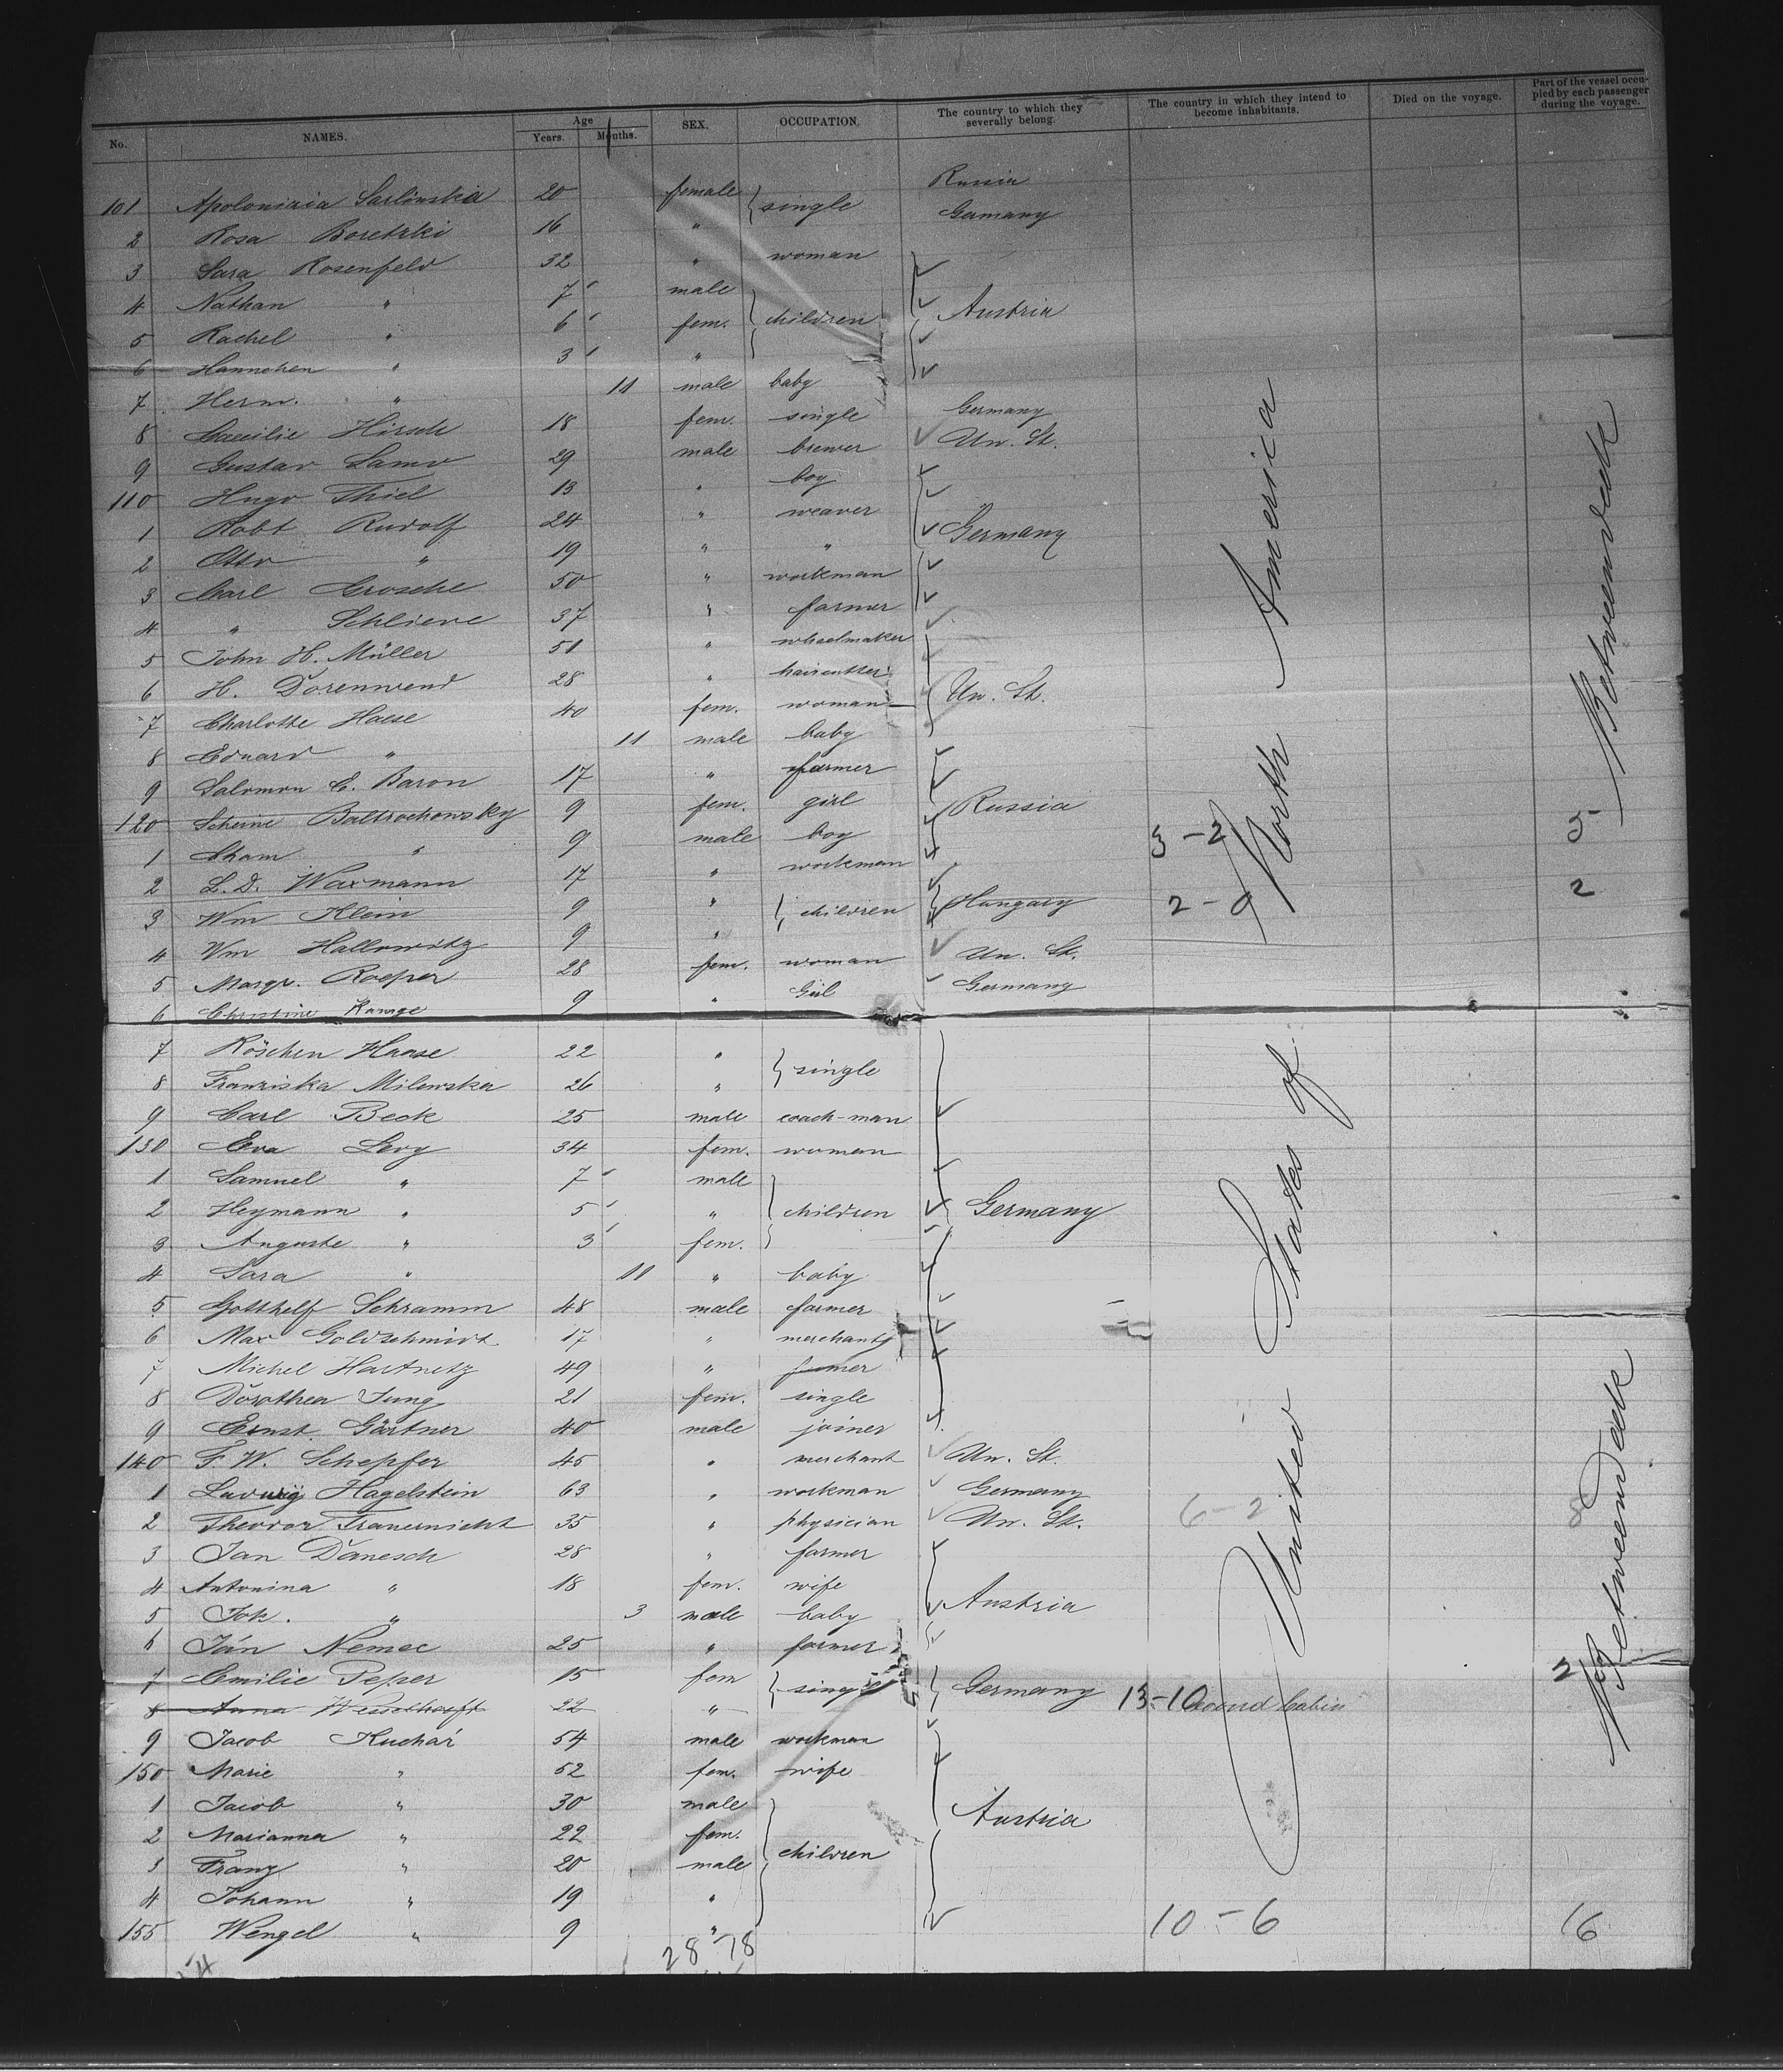 No. NAMES. Age Years. Months. SEX. OCCUPATION. The country to which they severally belong. The country in which they intend to become inhabitants. Died on the voyage. Part of the vessel occupied by each passenger during the voyage.
101 Sarlinska 20 female single Russia
2 Rosa Boretzki 16 " Germany
3 Sara Rosenfeld 32 " woman
4 Nathan " 7 male children Austria
5 Rachel " 6 fem.
6 Hannchen " 3 "
7 Herm. " 11 male baby
8 Caecilie Hirsch 18 fem. single Germany
9 Gustav 29 male brewer Un. St.
110 Hugo Thiel 13 " boy
1 Robt Rudolf 24 " weaver Germany
2 Otto " 19 " "
3 Carl Grosche 50 " workman
4 " Schlieve 37 " farmer
5 John H. Müller 51 " wheelmaker
6 H. Dorenwend 28 " haircutter
7 Charlotte Haese 40 fem. woman Un. St.
8 Eduard " 11 male baby
9 Salomon E. Baron 17 " farmer
120 Baltrochowsky 9 fem. girl Russia
1 Cham " 9 male boy 3-2 5
2 L. D. Waxmann 17 " workman
3 Wm Klein 9 " children Hungary 2-0 2
4 Wm Hallowitz 9 "
5 Margr. Roeper 28 fem. woman Un. St.
6 Christine Range 9 " Girl Germany
7 Röschen Haase 22 " single
8 Franziska Milewska 26 "
9 Carl Beck 25 male coach-man
130 Eva Levy 34 fem. woman
1 Samuel " 7 male
2 Heymann " 5 " children Germany
3 Auguste " 3 fem.
4 Sara " 11 " baby
5 Gotthelf Schramm 48 male farmer
6 Max Goldschmidt 17 " merchant
7 Michel Hartnetz 49 " farmer
8 Dorothea Jung 21 fem. single
9 Ernst Gärtner 40 male joiner
140 F. W. Schepfer 45 " merchant Un. St.
1 Ludwig Hagelstein 63 " workman Germany
2 Theodor Frauernicht 35 " physician Un. St. 6-2 8
3 Jan Danesch 28 " farmer
4 Antonina " 18 fem. wife
5 Joh. " 3 male baby Austria
6 Ján Nemec 25 " farmer
7 Emilie Peper 15 fem single Germany 2
8 Anna Wesselhoeft 22 " 13-10 Second Cabin
9 Jacob Kuchár 54 male workman
150 Marie " 52 fem. wife
1 Jacob " 30 male
2 Marianna " 22 fem. children Austria
3 Franz " 20 male
4 Johann " 19 "
155 Wenzel " 9 " 10-6 16
28 78
United States of North America
Betweendeck
Betweendeck